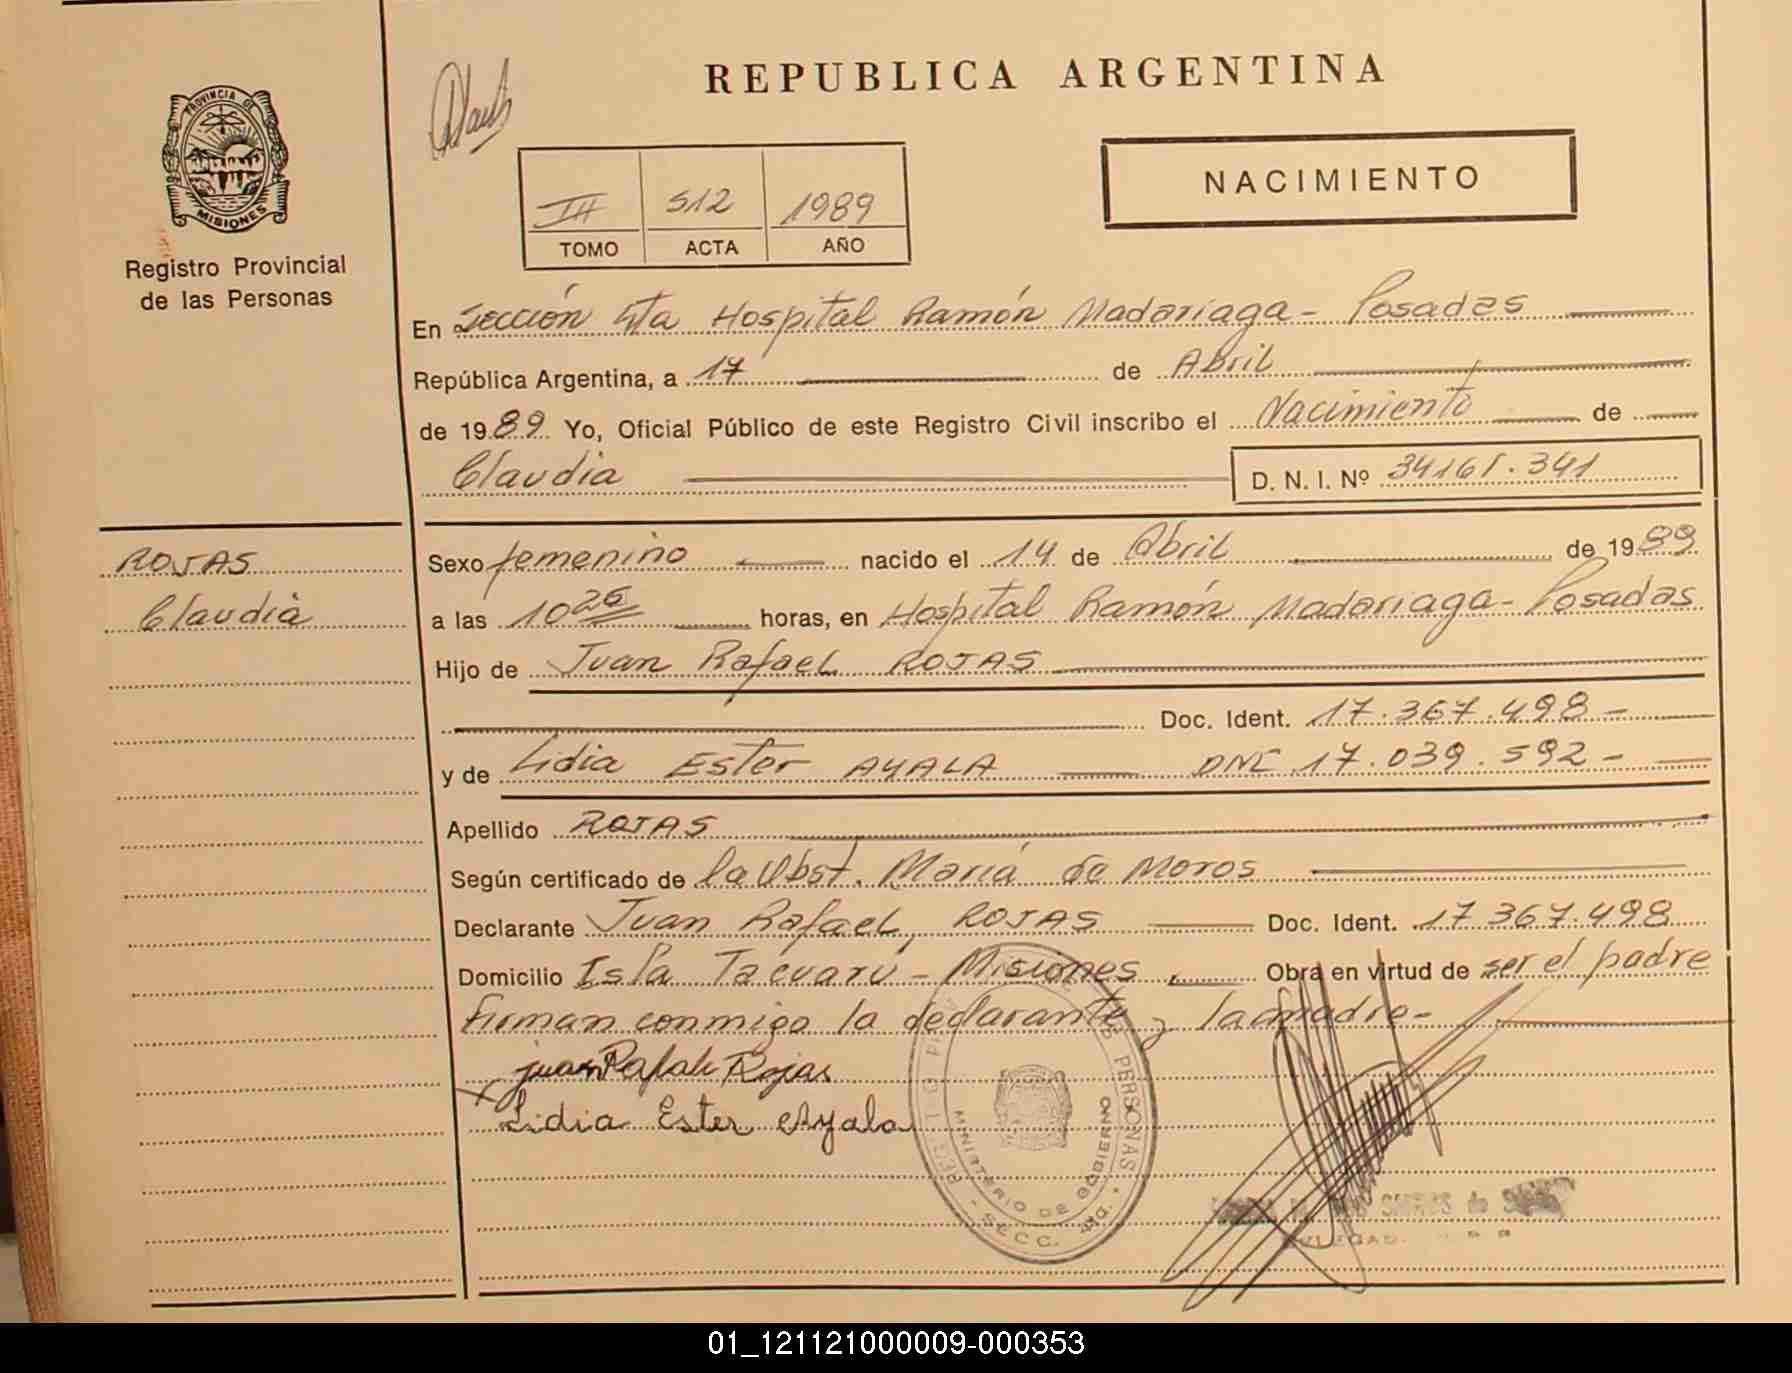 REPUBLICA ARGENTINA
PROVINCIA DE
MISIONES
Registro Provincial
de las Personas
III 512 1989
TOMO ACTA AÑO
NACIMIENTO
En Sección 4ta Hospital Ramón Madariaga - Posadas
República Argentina, a 17 de Abril
de 1989 Yo, Oficial Público de este Registro Civil inscribo el Nacimiento de
Claudia D. N. I. Nº 34161.341
ROJAS
Claudia
Sexo femenino nacido el 14 de Abril de 1989
a las 10 26 horas, en Hospital Ramón Madariaga - Posadas
Hijo de Juan Rafael ROJAS
Doc. Ident. 17.367.498 -
y de Lidia Ester AYALA DNI 17.039.592 -
Apellido ROJAS
Según certificado de la Obst. María de Moros
Declarante Juan Rafael, ROJAS Doc. Ident. 17367.498
Domicilio Isla Tacuarú - Misiones, Obra en virtud de ser el padre
firman conmigo la declarante y la madre -
juan Rafale Rojas
Lidia Ester Ayala
PERSONAS
MINISTERIO DE GOBIERNO
SECC.
01_121121000009-000353